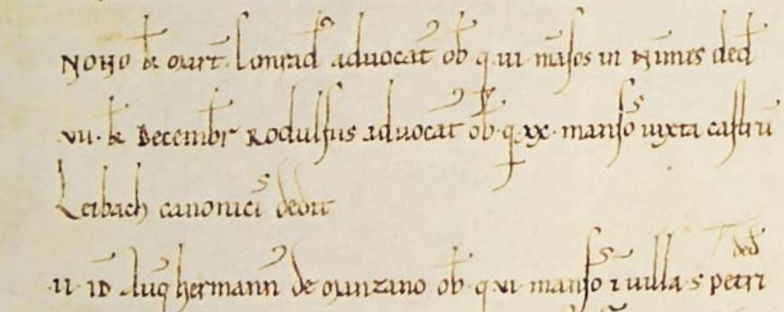 NONO kł MART. Conrad advocat ob q vi māsos in Nimes ded
VII. kł Decembr Rodulfus advocat ob. q. xx. manso iuxta castrū
Leibach canonicis dedit
II ID Aug hermann de Manzano ob q vi manso ī villa s petri
ded